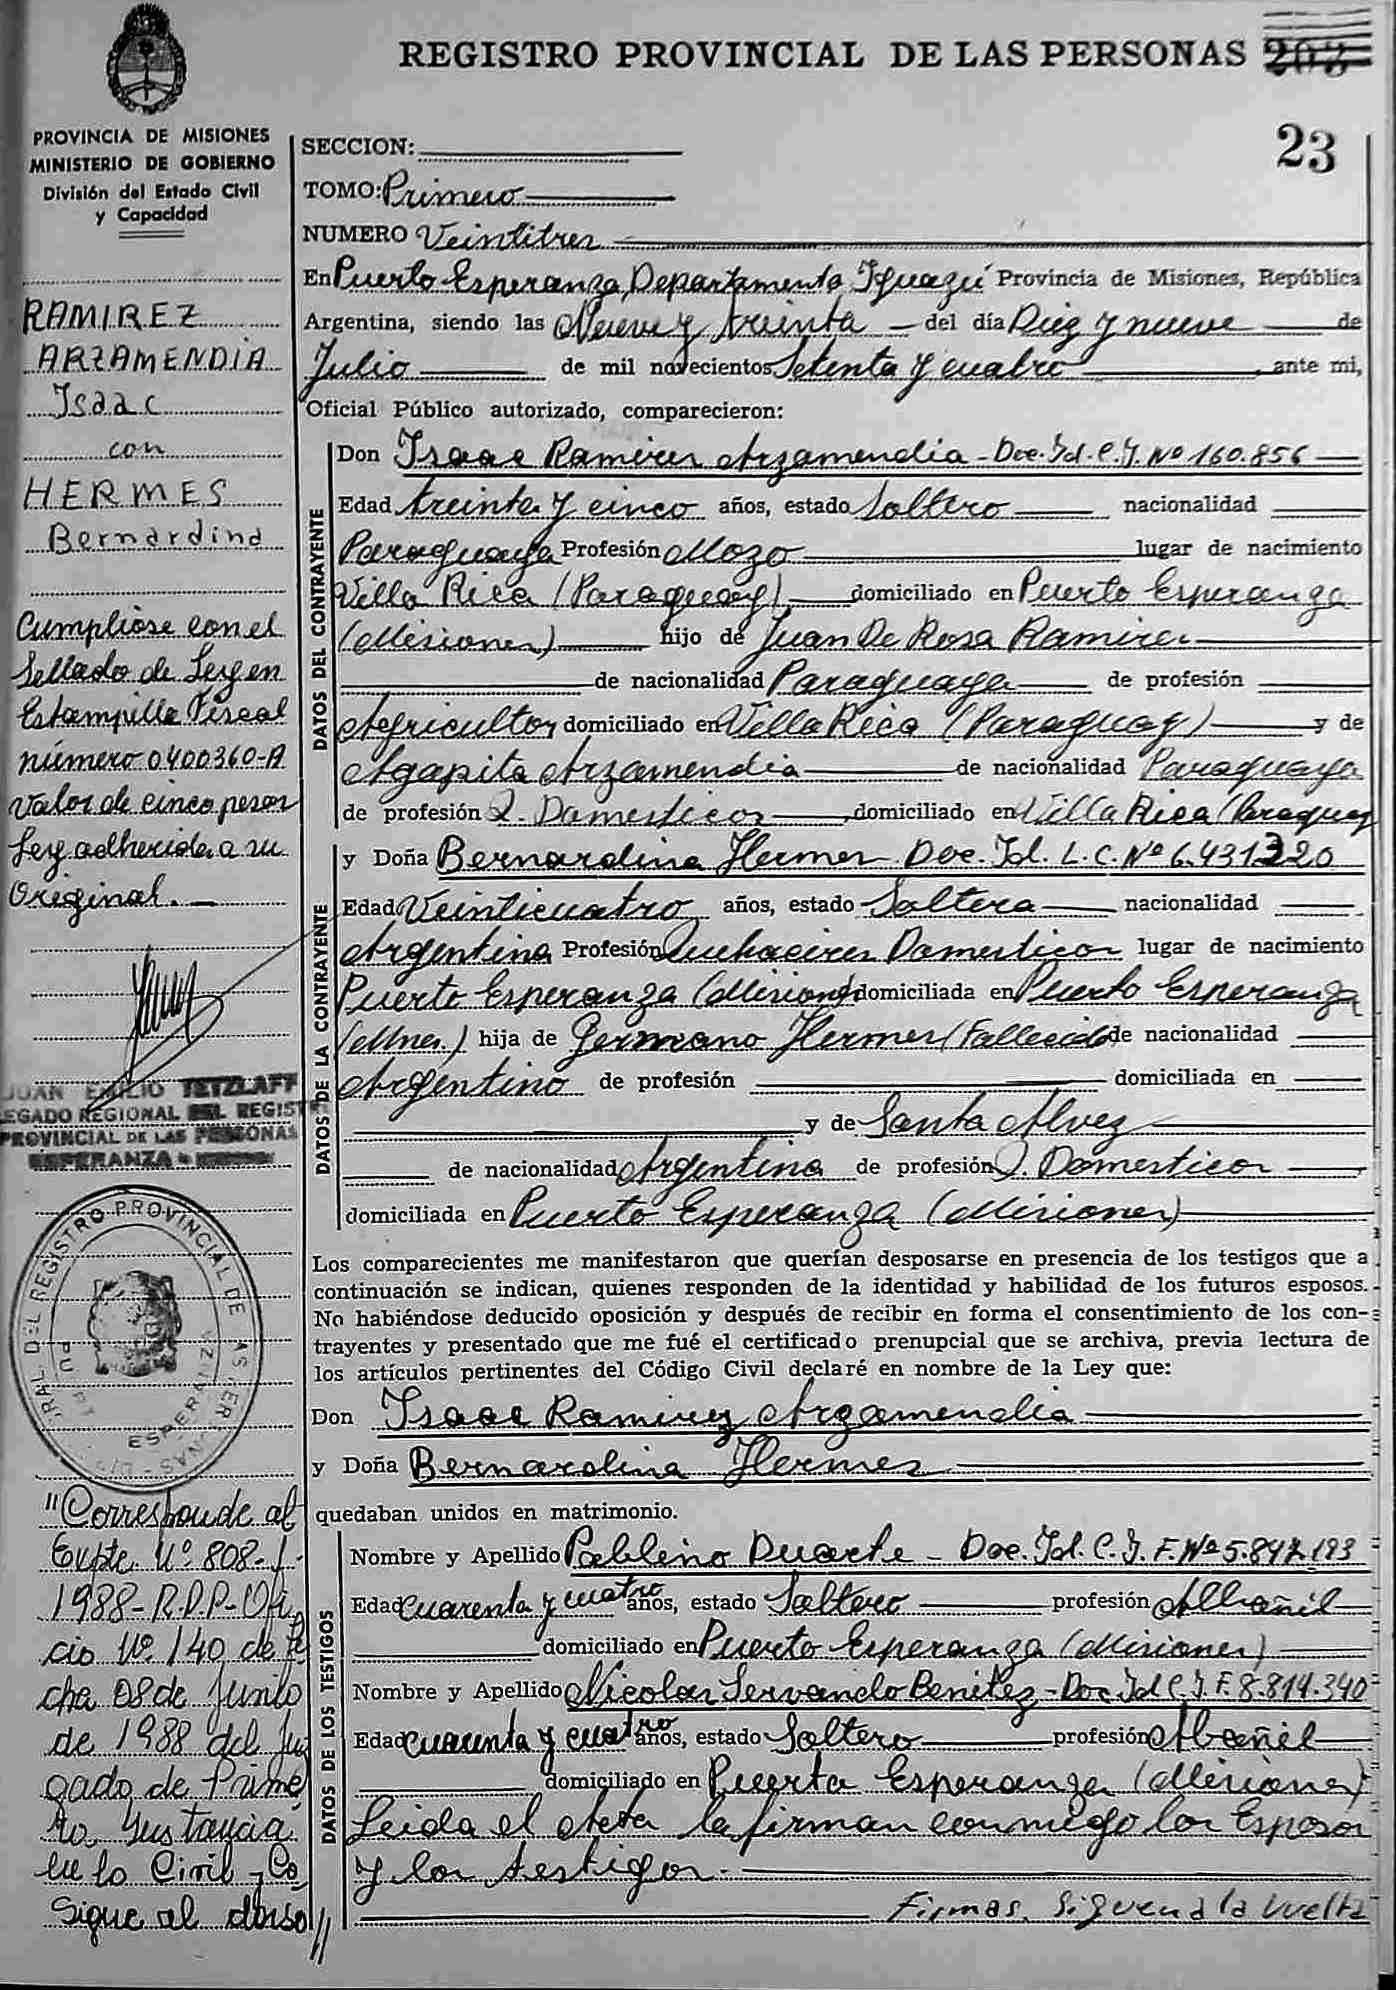 REGISTRO PROVINCIAL DE LAS PERSONAS 203
23
PROVINCIA DE MISIONES
MINISTERIO DE GOBIERNO
División del Estado Civil
y Capacidad
RAMIREZ
ARZAMENDIA
Isaac
con
HERMES
Bernardina
Cumpliose con el
Sellado de Ley en
Estampilla Fiscal
número 0400360-A
valor de cinco pesos
Ley adherida a su
Original.-
JUAN EMILIO TETZLAFF
LEGADO REGIONAL DEL REGIST
PROVINCIAL DE LAS PERSONAS
ESPERANZA
"Corresponde al
Expte. Nº 808-J-
1988-R.P.P-Ofi
cio Nº 140 de fe
cha 08 de Junio
de 1988 del Juz
gado de Prime
ra Instancia
en lo Civil y Co
Sigue al dorso//
SECCION:
TOMO: Primero
NUMERO Veintitres
En Puerto Esperanza, Departamento Iguazú Provincia de Misiones, República
Argentina, siendo las Nueve y treinta del día Diez y nueve de
Julio de mil novecientos Setenta y cuatro, ante mi,
Oficial Público autorizado, comparecieron:
DATOS DEL CONTRAYENTE
Don Isaac Ramirez Arzamendia - Doc. Id. C.I. Nº 160.856
Edad treinta y cinco años, estado Soltero nacionalidad
Paraguaya Profesión Mozo lugar de nacimiento
Villa Rica (Paraguay) domiciliado en Puerto Esperanza
(Misiones) hijo de Juan De Rosa Ramirez
de nacionalidad Paraguaya de profesión
Agricultor domiciliado en Villa Rica (Paraguay) y de
Agapita Arzamendia de nacionalidad Paraguaya
de profesión Q. Domesticos domiciliado en Villa Rica (Paraguay
DATOS DE LA CONTRAYENTE
y Doña Bernardina Hermes Doc. Id. L.C. Nº 6.431320
Edad Veinticuatro años, estado Soltera nacionalidad
Argentina Profesión Quehaceres Domesticos lugar de nacimiento
Puerto Esperanza (Misiones) domiciliada en Puerto Esperanza
(Mnes.) hija de Germano Hermes (Fallecido de nacionalidad
Argentino de profesión domiciliada en
y de Santa Alvez
de nacionalidad Argentina de profesión Q. Domesticos
domiciliada en Puerto Esperanza (Misiones)
Los comparecientes me manifestaron que querían desposarse en presencia de los testigos que a
continuación se indican, quienes responden de la identidad y habilidad de los futuros esposos.
No habiéndose deducido oposición y después de recibir en forma el consentimiento de los con-
trayentes y presentado que me fué el certificado prenupcial que se archiva, previa lectura de
los artículos pertinentes del Código Civil declaré en nombre de la Ley que:
Don Isaac Ramirez Arzamendia
y Doña Bernardina Hermes
quedaban unidos en matrimonio.
DATOS DE LOS TESTIGOS
Nombre y Apellido Pableino Duarte - Doc. Id. C.I. F. Nº 5.847.193
Edad cuarenta y cuatro años, estado Soltero profesión Albañil
domiciliado en Puerto Esperanza (Misiones)
Nombre y Apellido Nicolas Servando Benitez - Doc Id C.I. F. 8.814.340
Edad cuarenta y cuatro años, estado Soltero profesión Albañil
domiciliado en Puerto Esperanza (Misiones)
Leida el Acta la firman conmigo los Esposos
y los testigos.-
Firmas siguen a la vuelta